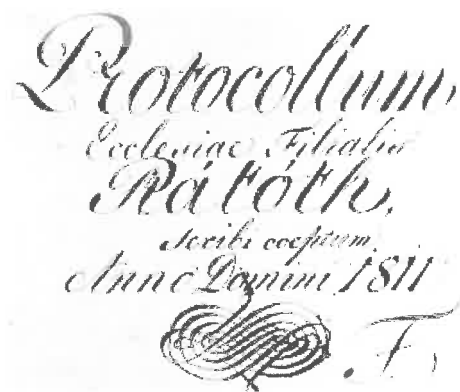 Protocollum
Ecclesiae Filialis
Rátóth,
scribi coeptum
Anno Domini 1811